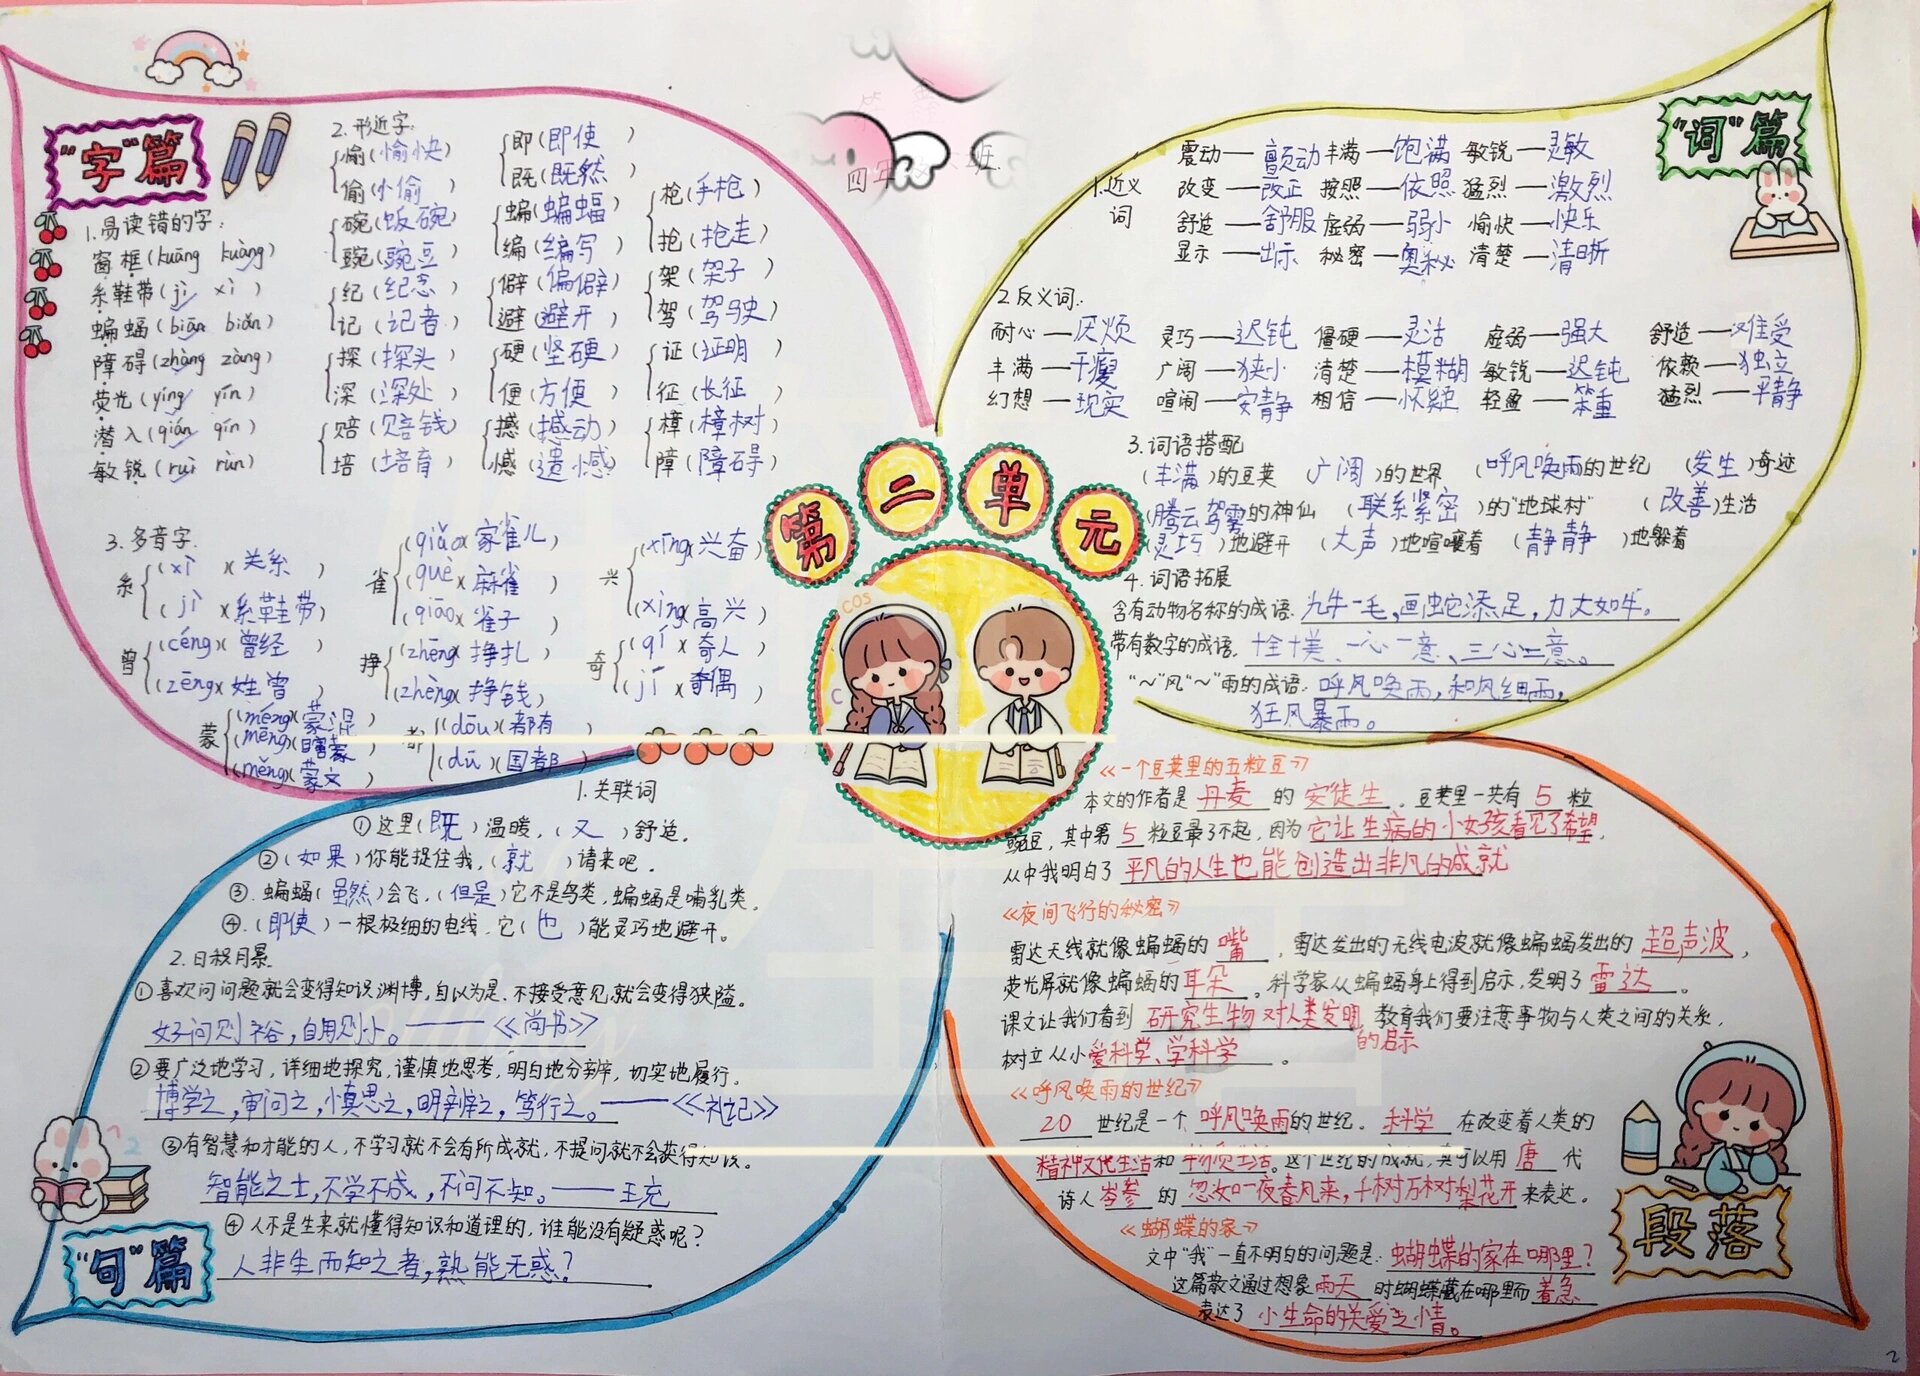 第二单元
"字"篇
1.易读错的字:
窗框(kuāng kuàng)
系鞋带(jì xì)
蝙蝠(biān biǎn)
障碍(zhàng zàng)
荧光(yíng yín)
潜入(qián qín)
敏锐(ruì rùn)
2.形近字:
愉(愉快)
偷(小偷)
碗(饭碗)
豌(豌豆)
纪(纪念)
记(记者)
探(探头)
深(深处)
赔(赔钱)
培(培育)
即(即使)
既(既然)
蝙(蝙蝠)
编(编写)
僻(偏僻)
避(避开)
硬(坚硬)
便(方便)
撼(撼动)
憾(遗憾)
枪(手枪)
抢(抢走)
架(架子)
驾(驾驶)
证(证明)
征(长征)
樟(樟树)
障(障碍)
3.多音字.
系 (xì)(关系)
(jì)(系鞋带)
曾 (céng)(曾经)
(zēng)(姓曾)
蒙 (méng)(蒙混)
(mēng)(瞎蒙)
(měng)(蒙文)
雀 (qiǎo)(家雀儿)
(què)(麻雀)
(qiāo)(雀子)
挣 (zhēng)(挣扎)
(zhèng)(挣钱)
都 (dōu)(都有)
(dū)(国都)
兴 (xīng)(兴奋)
(xìng)(高兴)
奇 (qí)(奇人)
(jī)(奇偶)
"词"篇
1.近义词
震动—颤动 丰满—饱满 敏锐—灵敏
改变—改正 按照—依照 猛烈—激烈
舒适—舒服 虚弱—弱小 愉快—快乐
显示—出示 秘密—奥秘 清楚—清晰
2.反义词:
耐心—厌烦 灵巧—迟钝 僵硬—灵活 虚弱—强大 舒适—难受
丰满—干瘦 广阔—狭小 清楚—模糊 敏锐—迟钝 依赖—独立
幻想—现实 喧闹—安静 相信—怀疑 轻盈—笨重 猛烈—平静
3.词语搭配
(丰满)的豆荚 广阔)的世界 (呼风唤雨的世纪 (发生)奇迹
(腾云驾雾的神仙 (联系紧密)的"地球村" (改善)生活
(灵巧)地避开 (大声)地喧嚷着 (静静)地躲着
4.词语拓展
含有动物名称的成语.九牛一毛,画蛇添足,力大如牛。
带有数字的成语.十全十美、一心一意、三心二意。
"~"风"~"雨的成语:呼风唤雨,和风细雨,
狂风暴雨。
1.关联词
①这里(既)温暖,(又)舒适.
②(如果)你能捉住我,(就)请来吧.
③.蝙蝠(虽然)会飞,(但是)它不是鸟类,蝙蝠是哺乳类.
④.(即使)一根极细的电线,它(也)能灵巧地避开。
2.日积月累
①喜欢问问题就会变得知识渊博,自以为是、不接受意见就会变得狭隘。
好问则裕,自用则小。——《尚书》
②要广泛地学习,详细地探究,谨慎地思考,明白地分辨,切实地履行。
博学之,审问之,慎思之,明辨之,笃行之。——《礼记》
③有智慧和才能的人,不学习就不会有所成就,不提问就不会获得知识。
智能之士,不学不成,不问不知。——王充
④人不是生来就懂得知识和道理的,谁能没有疑惑呢?
人非生而知之者,熟能无惑?
"句"篇
《一个豆荚里的五粒豆》
本文的作者是 丹麦 的 安徒生 。豆荚里一共有 5 粒
豌豆,其中第 5 粒豆最了不起,因为它让生病的小女孩看见了希望.
从中我明白了 平凡的人生也能创造出非凡的成就
《夜间飞行的秘密》
雷达天线就像蝙蝠的 嘴 ,雷达发出的无线电波就像蝙蝠发出的 超声波,
荧光屏就像蝙蝠的耳朵 。科学家从蝙蝠身上得到启示,发明了 雷达 。
课文让我们看到 研究生物对人类发明的启示 教育我们要注意事物与人类之间的关系,
树立从小爱科学、学科学 。
《呼风唤雨的世纪》
20 世纪是一个 呼风唤雨的世纪。 科学 在改变着人类的
精神文化生活和 物质生活。这个世纪的成就,真可以用 唐 代
诗人 岑参 的 忽如一夜春风来,千树万树梨花开来表达。
《蝴蝶的家》
文中"我"一直不明白的问题是: 蝴蝶的家在哪里?
这篇散文通过想象 雨天 时蝴蝶藏在哪里而 着急
表达了 小生命的关爱之情。
段落
2